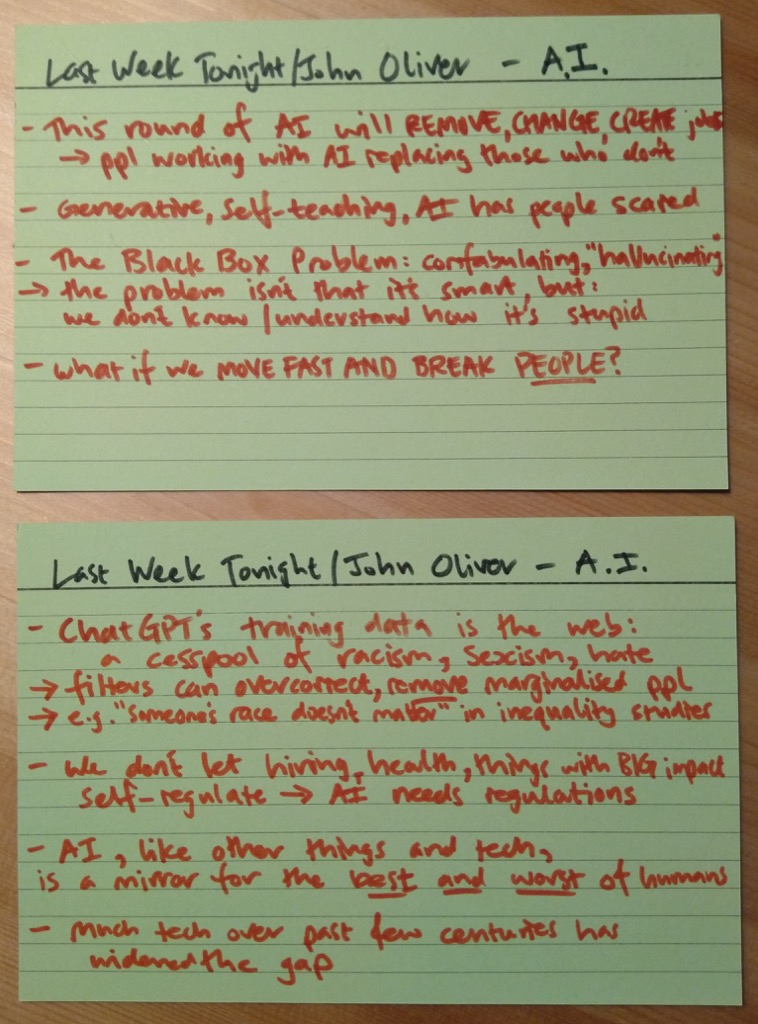 Last Week Tonight/John Oliver - A.I.
- This round of AI will REMOVE, CHANGE, CREATE jobs
→ ppl working with AI replacing those who don't
- Generative, self-teaching, AI has people scared
- The Black Box Problem: confabulating, "hallucinating"
→ the problem isn't that it's smart, but:
we don't know / understand how it's stupid
- what if we MOVE FAST AND BREAK PEOPLE?
Last Week Tonight/John Oliver - A.I.
- ChatGPT's training data is the web:
a cesspool of racism, sexism, hate
→ filters can overcorrect, remove marginalised ppl
→ e.g. "someone's race doesn't matter" in inequality studies
- we don't let hiring, health, things with BIG impact
self-regulate → AI needs regulations
- AI, like other things and tech,
is a mirror for the best and worst of humans
- Much tech over past few centuries has
widened the gap